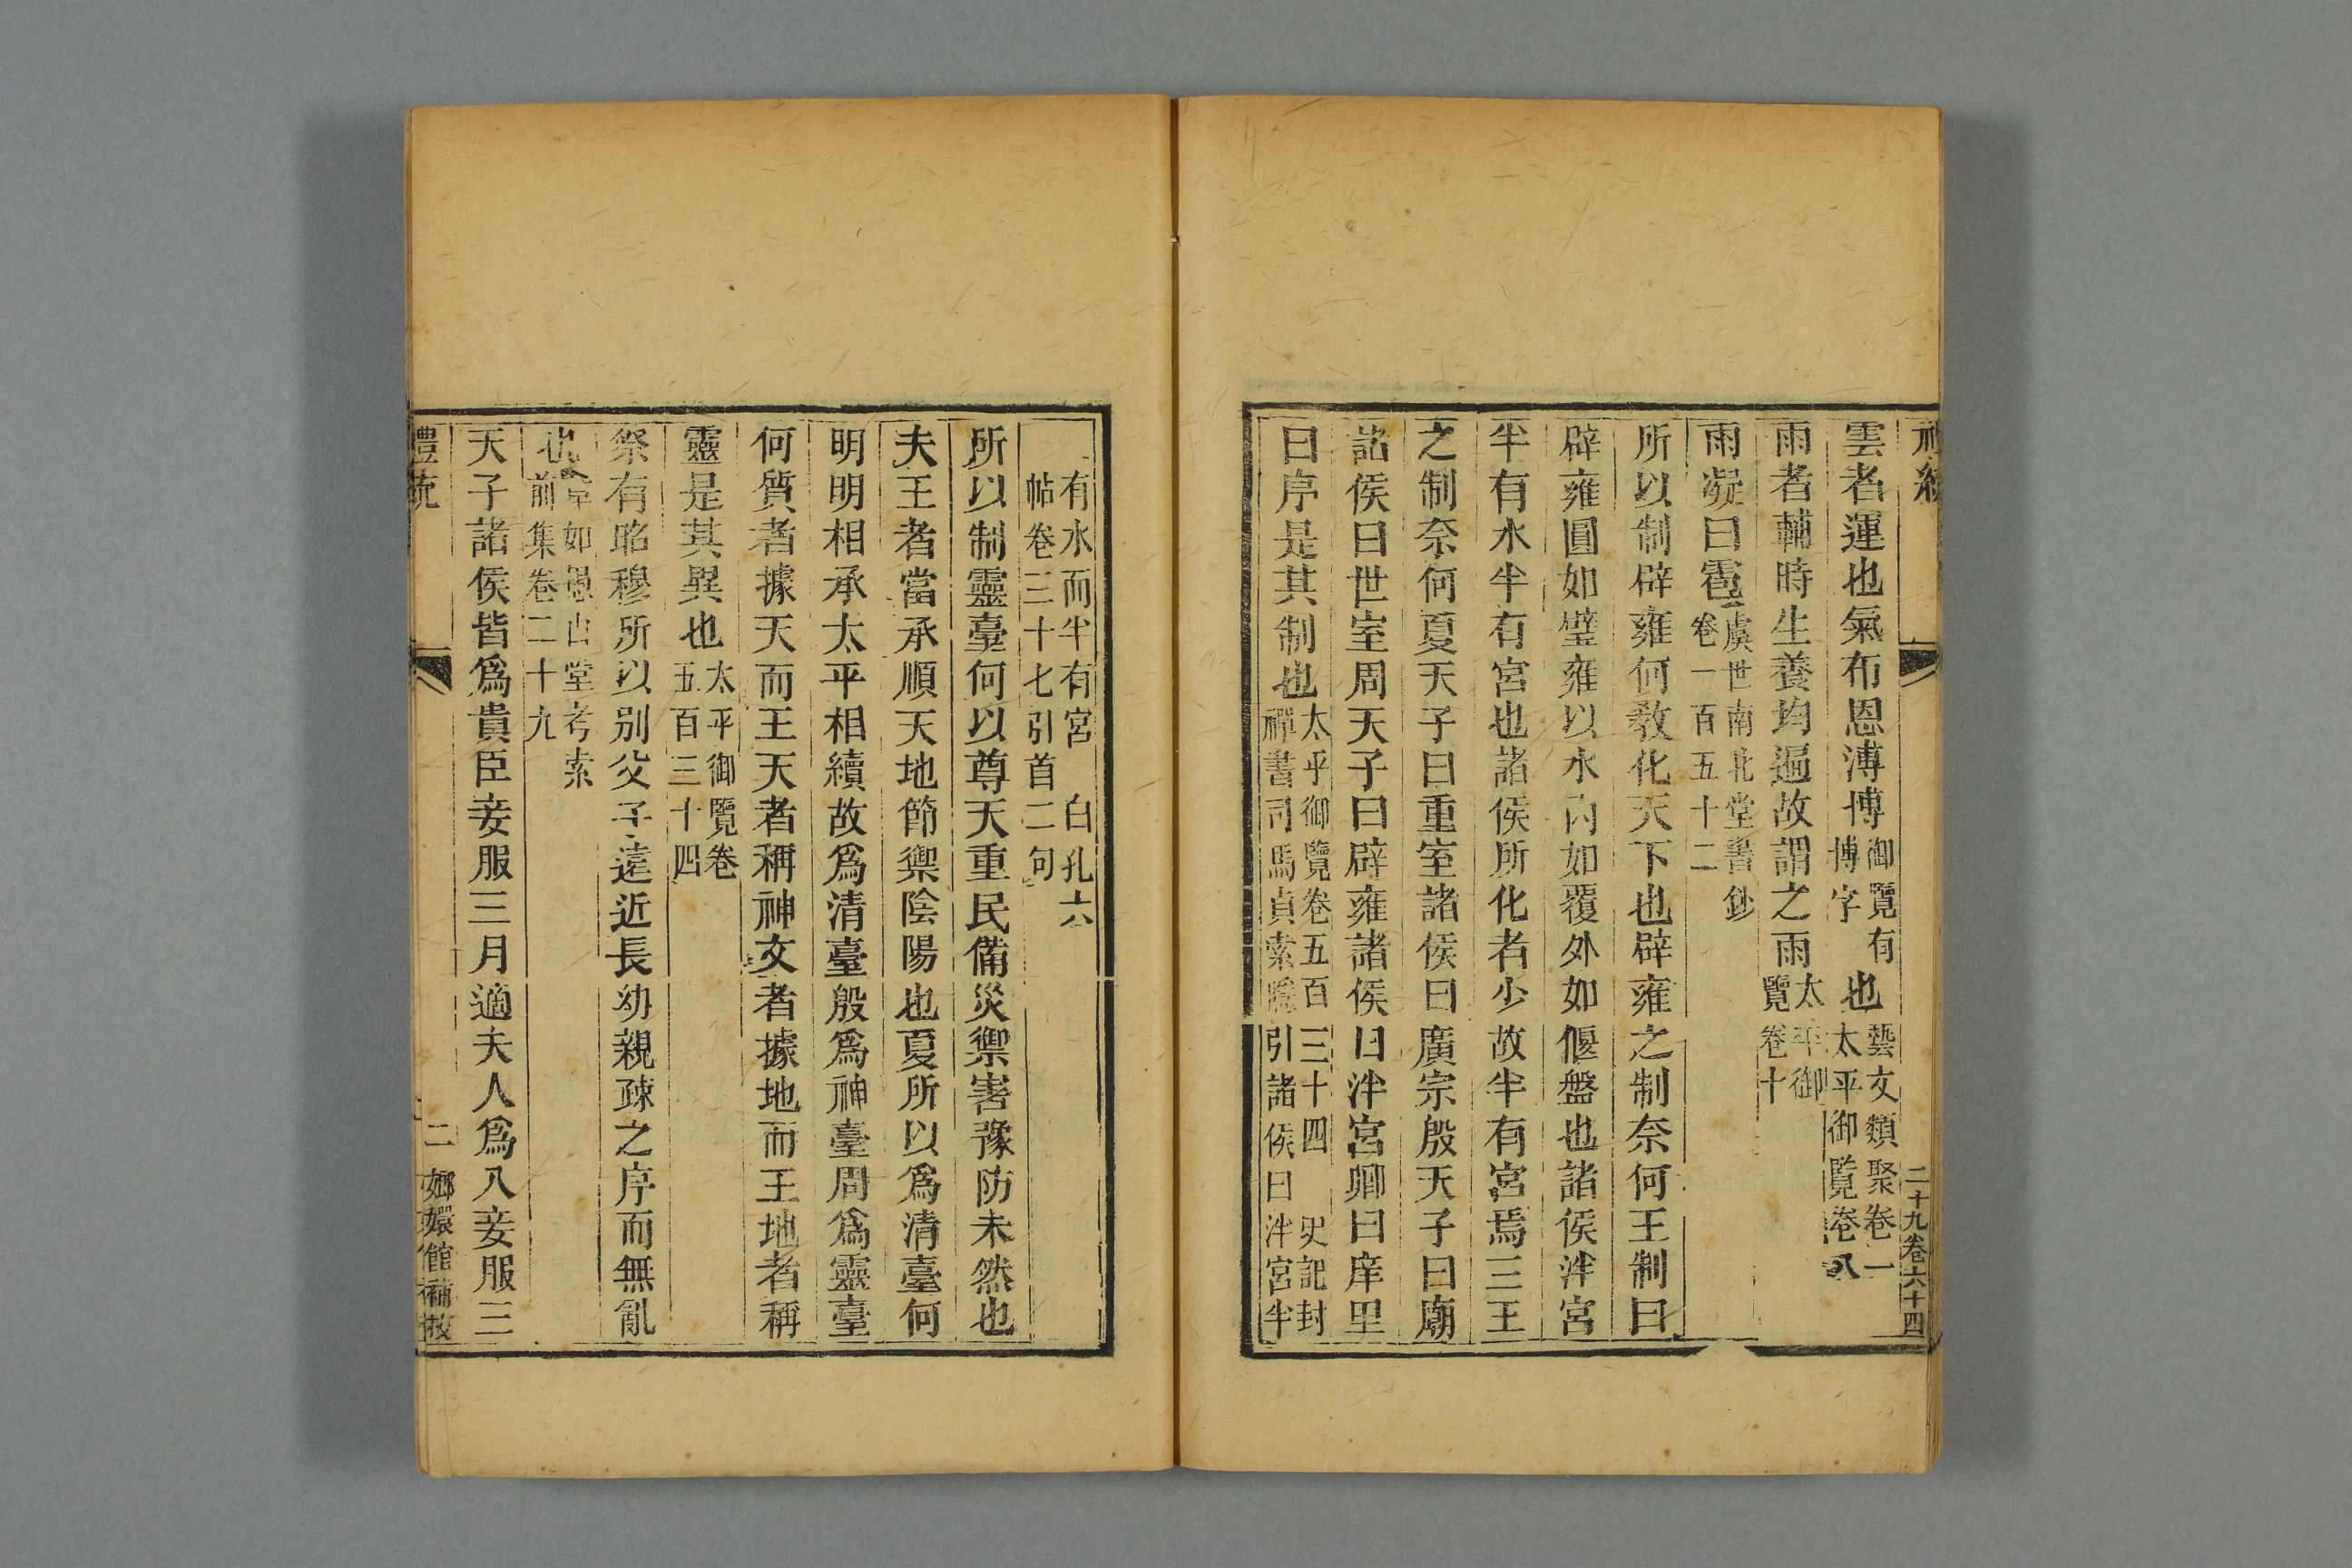 二十九卷六十四
雲者運也氣布恩溥博御覽有博字也藝文類聚卷一太平御覽卷八
雨者輔時生養均遍故謂之雨太平御覽卷十
雨凝曰雹虞世南北堂書鈔卷一百五十二
所以制辟雍何敎化天下也辟雍之制奈何王制曰
辟雍圓如璧雍以水內如覆外如偃盤也諸侯泮宮
半有水半有宮也諸侯所化者少故半有宮焉三王
之制奈何夏天子曰重室諸侯曰廣宗殷天子曰廟
諸侯曰世室周天子曰辟雍諸侯曰泮宮鄉曰庠里
曰序是其制也太平御覽卷五百三十四 史記封禪書司馬貞索隱引諸侯曰泮宮半
有水而半有宮 白孔六帖卷三十七引首二句
所以制靈臺何以尊天重民備災禦害豫防未然也
夫王者當承順天地節禦陰陽也夏所以爲清臺何
明明相承太平相續故爲清臺殷爲神臺周爲靈臺
何質者據天而王天者稱神文者據地而王地者稱
靈是其異也太平御覽卷五百三十四
祭有昭穆所以別父子遠近長幼親疎之序而無亂
也章如愚山堂考索前集卷二十九
天子諸侯皆爲貴臣妾服三月適夫人爲八妾服三
禮統
二 嫏嬛館補校